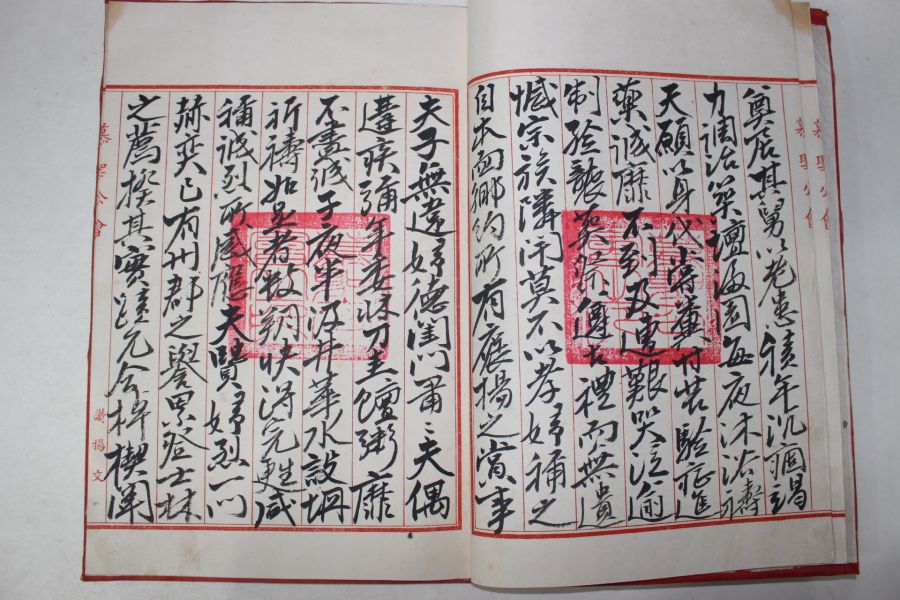 慕聖公會
奠居其舅以老患積年沉痼竭
力調治築壇後園每夜沐浴禱
天願以身代嘗糞驗症進
藥誠靡不到及遭艱哭泣逾
制殮襲葬祭遵古禮而無遺
憾宗族隣閈莫不以孝婦稱之
自本面鄕約所有庭揚之賞事
夫子無違婦德閨門肅〻夫偶
遘疾彌年委牀刀圭饘粥靡
不盡誠子夜半汲井華水設
祈禱如是者數朔快得完甦咸
稱誠烈所感應夫賢婦烈一門
赫奕已有州群之譽累登士林
之薦揆其實蹟允合棹楔闡
慕聖公會
讚揚文